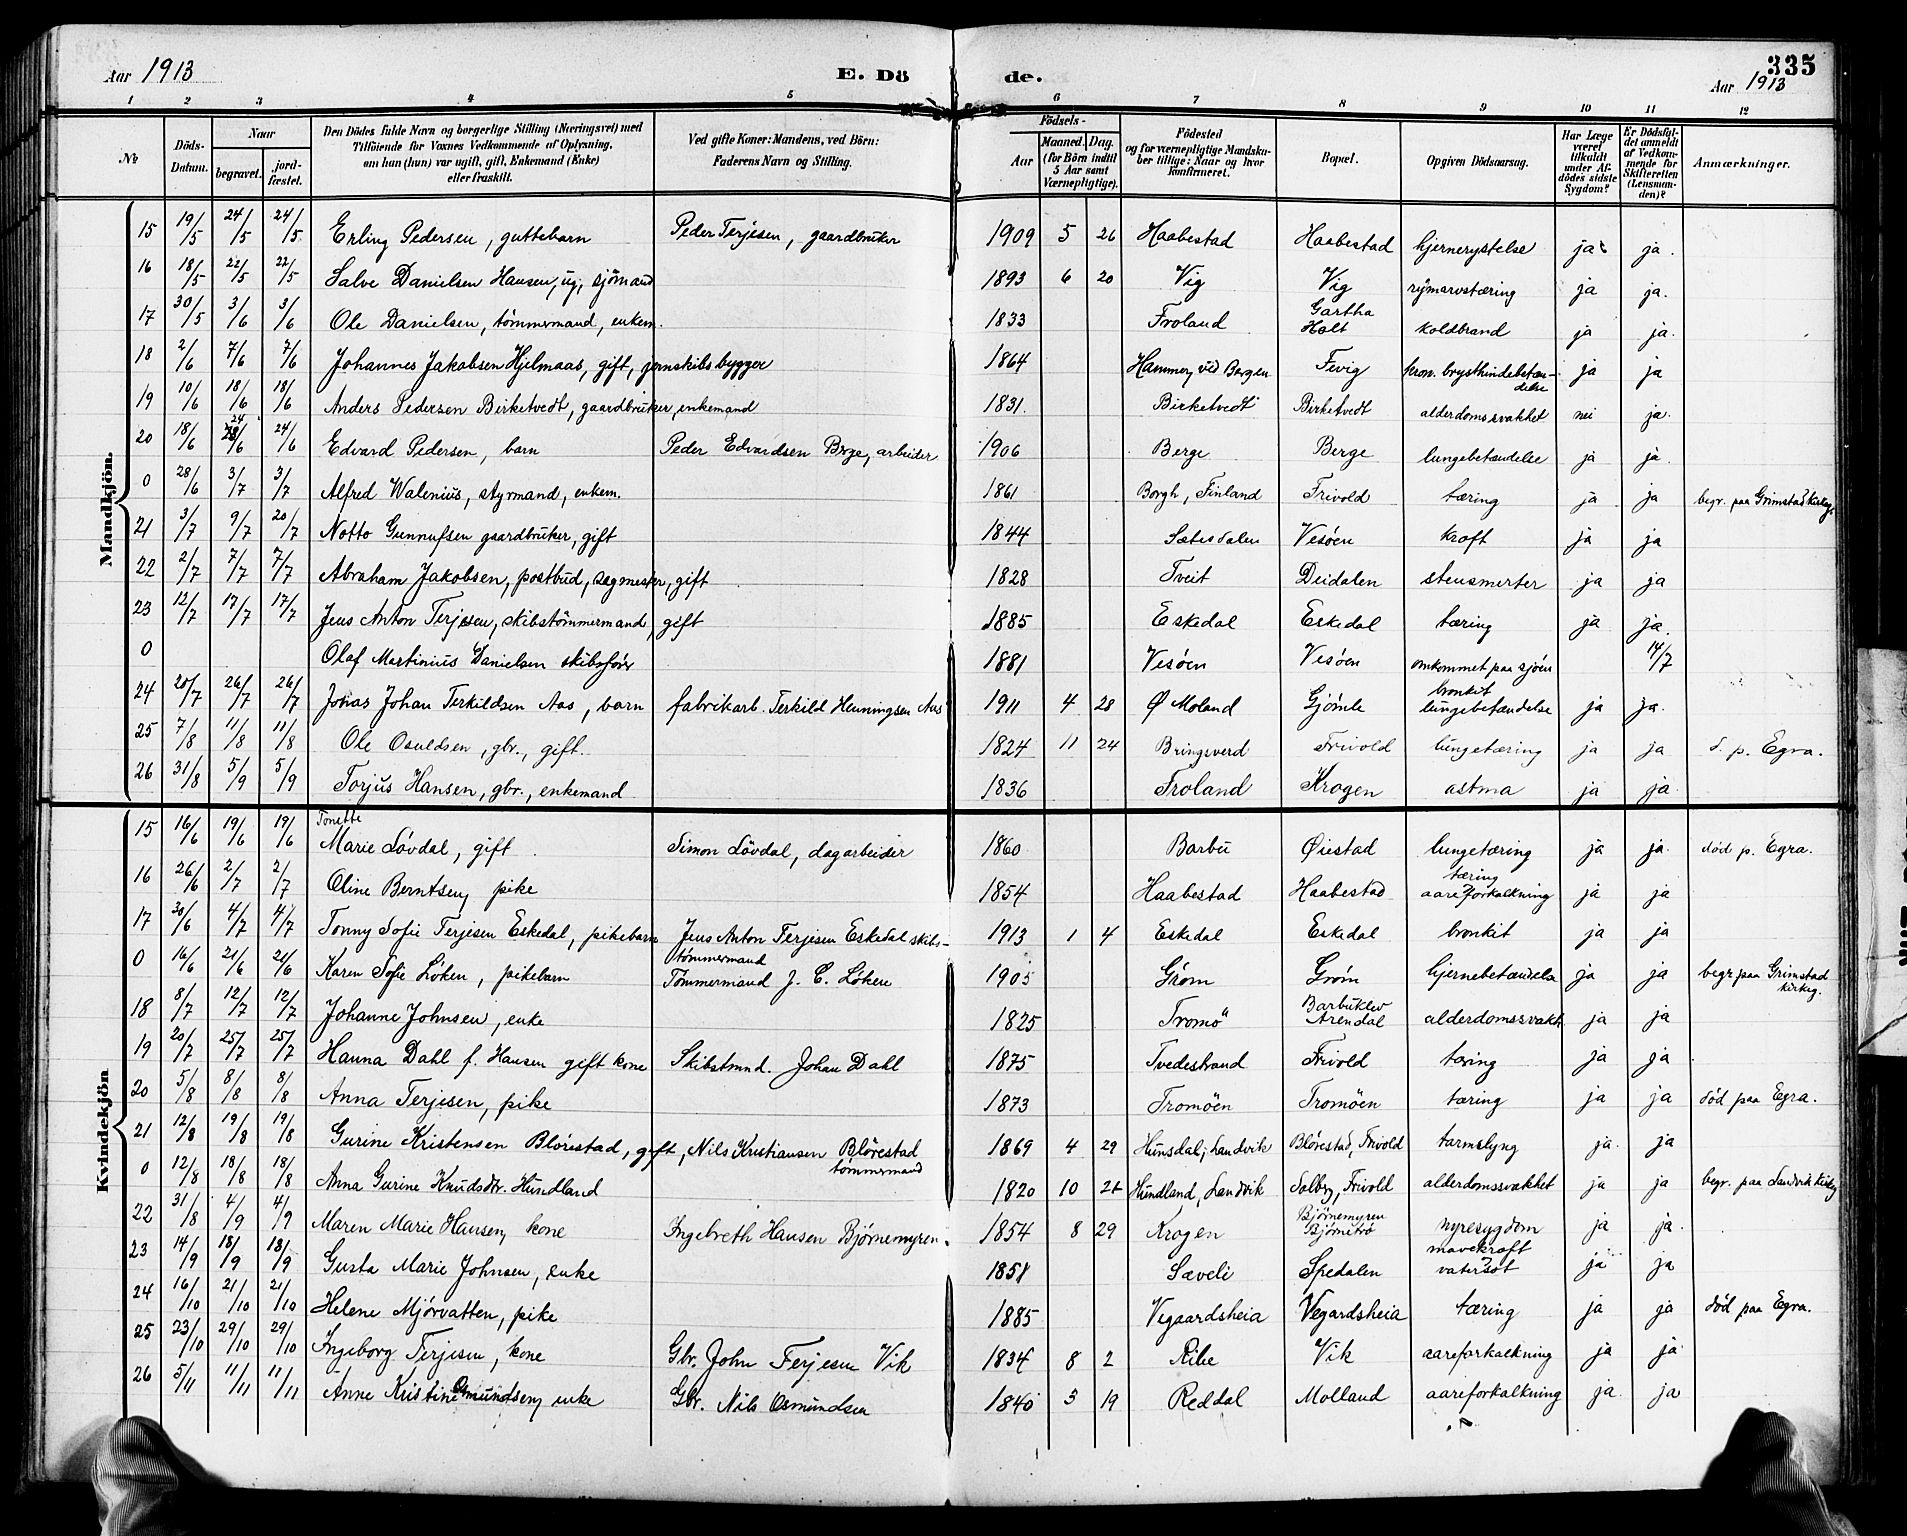 Aar 1913 E. Dö de. Aar 1913 335
1 2 3 4 5 6 7 8 9 10 11 12
No Döds-Datum. Naar begravet. jord-fæstet. Den Dödes fulde Navn og borgerlige Stilling (Næringsvei) med Tilföiende for Voxnes Vedkommende af Oplysning, om han (hun) var ugift, gift, Enkemand (Enke) eller fraskilt. Ved gifte Koner: Mandens, ved Börn: Faderens Navn og Stilling. Födsels- Aar Maaned. Dag. (for Börn indtil 5 Aar samt Værnepligtige). Födested og for værnepligtige Mandskaber tillige: Naar og hvor konfirmeret. Bopæl. Opgiven Dödsaarsag. Har Læge været tilkaldt under Afdödes sidste Sygdom? Er Dödsfaldet anmeldt af Vedkommende for Skifteretten (Lensmanden)? Anmærkninger.
Mandkjön.
15 19/5 24/5 24/5 Erling Pedersen, guttebarn Peder Terjesen, gaardbruker 1909 5 26 Haabestad Haabestad hjernerystelse ja ja.
16 18/5 22/5 22/5 Salve Danielsen Hansen, ug, sjömand 1893 6 20 Vig Vig rygmarvstæring ja ja.
17 30/5 3/6 3/6 Ole Danielsen, tömmermand, enkem. 1833 Froland Gartha Holt koldbrand ja ja.
18 2/6 7/6 7/6 Johannes Jakobsen Hjelmaas, gift, jernskibsbygger 1864 Hammer, ved Bergen Fevig kron. brysthindebetændelse ja ja
19 10/6 18/6 18/6 Anders Pedersen Birketvedt, gaardbruker, enkemand 1831. Birketvedt Birketvedt alderdomssvakhet nei ja.
20 18/6 24/6 24/6 Edvard Pedersen, barn Peder Edvardsen Berge, arbeider 1906 Berge Berge lungebetændelse ja ja.
0 28/6 3/7 3/7 Alfred Walenius, styrmand, enkem. 1861 Borgh, Finland Frivold tæring ja ja begr. paa Grimstad kirkeg.
21 3/7 9/7 20/7 Notto Gunnufsen gaardbruker, gift 1844 Sætesdalen Vesöen kræft ja ja
22 2/7 7/7 7/7 Abraham Jakobsen, postbud, sagmester, gift 1828 Tveit Deidalen stensmerter ja ja
23 12/7 17/7 17/7 Jens Anton Terjesen, skibstömmermand, gift 1885 Eskedal Eskedal tæring ja ja.
0 Olaf Martinius Danielsen skibsförer 1881 Vesöen Vesöen omkommet paa sjöen 14/7
24 20/7 26/7 26/7 Jonas Johan Terkildsen Aas, barn fabrikarb. Terkild Henningsen Aas 1911 4 28 Ø Moland Gjömle bronkit lungebetændelse ja ja.
25 7/8 11/8 11/8 Ole Osuldsen, gbr., gift. 1824 11 24 Bringsverd Frivold lungetæring ja ja d. p. Egra.
26 31/8 5/9 5/9 Torjus Hansen, gbr., enkemand 1836 Froland Krogen astma ja ja
Kvindekjön
15 16/6 19/6 19/6 Tonette Marie Lövdal, gift Simon Lövdal, dagarbeider 1860 Barbu Øiestad lungetæring ja ja. död p. Egra.
16 26/6 2/7 2/7 Oline Berntsen, pike 1854 Haabestad Haabestad tæring aareforkalkning ja ja
17 30/6 4/7 4/7 Tonny Sofie Terjesen Eskedal, pikebarn Jens Anton Terjesen Eskedal skibstömmermand 1913 1 4 Eskedal Eskedal bronkit ja ja
0 16/6 21/6 21/6 Karen Sofie Löken, pikebarn Tömmermand J. C. Löken 1905 Gröm Gröm hjernebetændelse ja ja begr paa Grimstad kirkeg.
18 8/7 12/7 12/7 Johanne Johnsen, enke 1825 Tromö Barbuklev Arendal alderdomssvakh ja ja
19 20/7 25/7 25/7 Hanna Dahl f. Hansen gift kone Skibstmnd. Johan Dahl 1875 Tvedestrand Frivold tæring ja ja
20 5/8 8/8 8/8 Anna Terjesen, pike 1873 Tromöen Tromöen tæring ja ja död paa Egra.
21 12/8 19/8 19/8 Gurine Kristensen Blörestad, gift, Nils Kristiansen Blörestad tömmermand 1869 4 29 Hunsdal, Landvik Blörestad, Frivold tarmslyng ja. ja
0 12/8 18/8 18/8 Anna Gurine Knudsdtr. Hundland 1820 10 21 Hundland, Landvik Solberg, Frivold alderdomssvakhet ja ja begr. paa Landvik kirkeg
22 31/8 4/9 4/9 Maren Marie Hansen, kone Ingebreth Hansen Bjørnemyren. 1854 8 29 Krogen Bjørnemyren Bjørnetrø nyresygdom ja ja.
23 14/9 18/9 18/9 Gusta Marie Johnsen, enke 1851 Sæveli Spedalen mavekræft vatersot ja ja
24 16/10 21/10 21/10 Helene Mjörvatten, pike 1885 Vegaardsheia Vegardsheia tæring ja ja död paa Egra.
25 23/10 29/10 29/10 Ingeborg Terjesen, kone Gbr. John Terjesen Vik 1834 8 2 Ribe Vik aareforkalkning ja ja
26 5/11 11/11 11/11 Anne Kristine Osmundsen, enke Gbr. Nils Osmundsen 1840 5 19 Reddal Molland aareforkalkning ja. ja